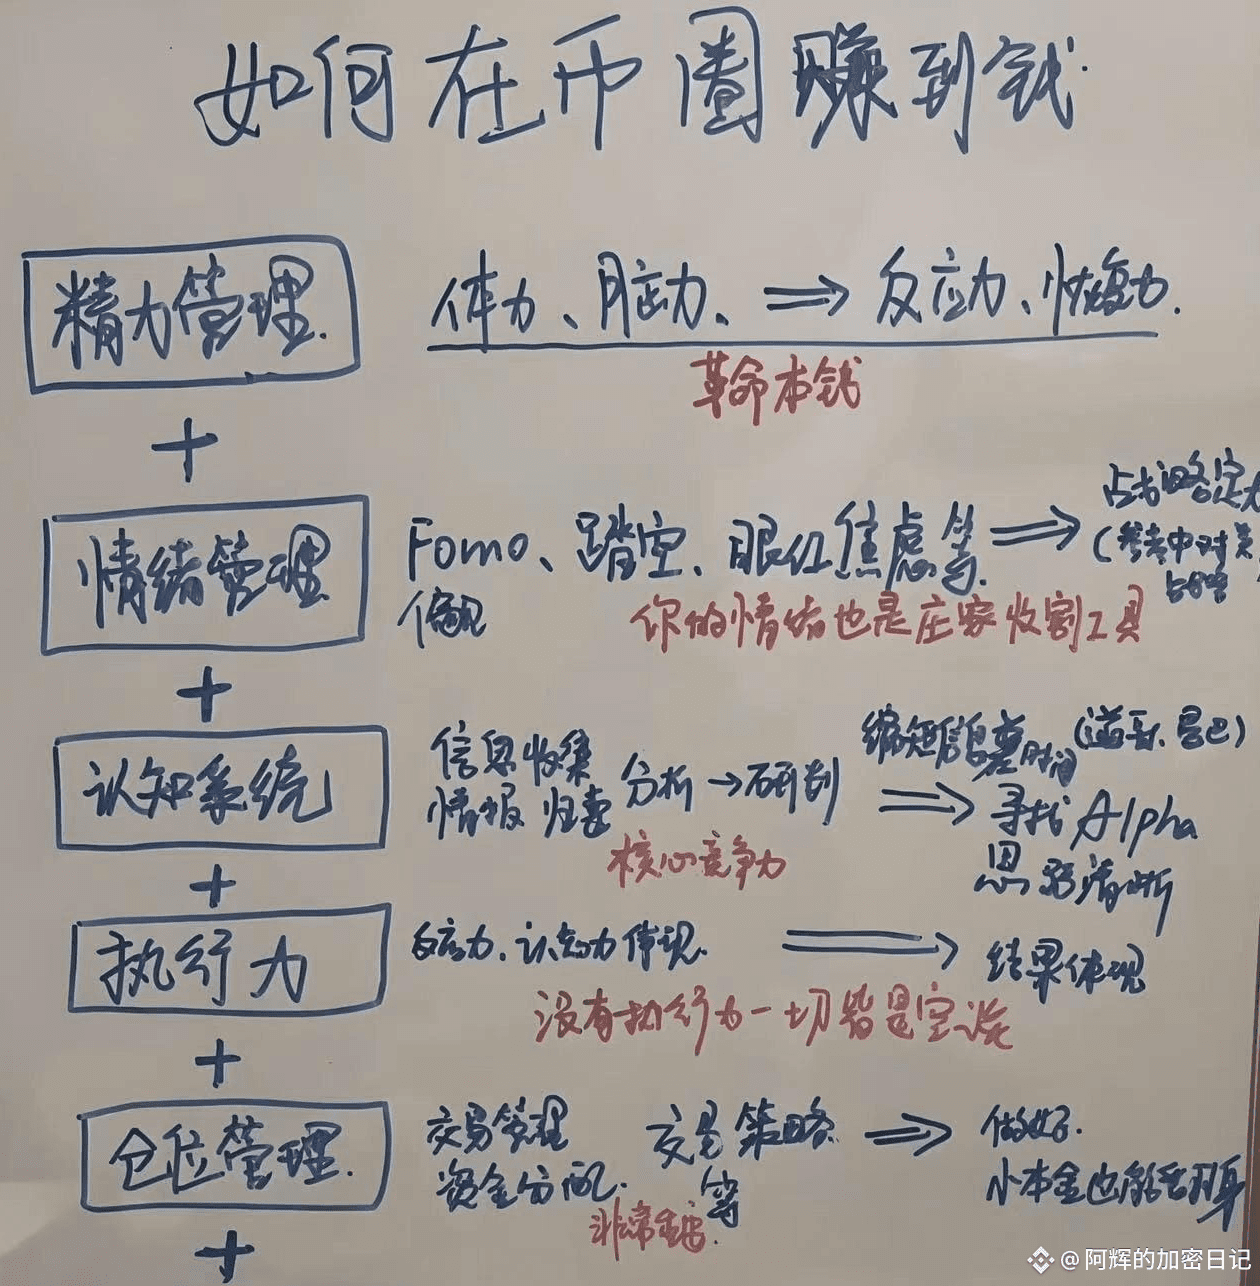 如何在币圈赚到钱.
精力管理.
体力、脑力、⇒ 反应力、恢复力.
革命本钱
+
情绪管理
Fomo、踏空、眼红焦虑等. ⇒
偏见
(参考中对美
你的情绪也是庄家收割工具
+
认知系统
信息收集
情报 归类
分析 → 研判 ⇒
缩短信息差时间
寻找 Alpha
思路清晰
核心竞争力
+
执行力
反应力、认知力体现. ⇒ 结果体现
没有执行力一切皆是空谈
+
仓位管理.
交易管理
资金分配.
交易策略
等
⇒ 做好.
小本金也能翻身
非常重要.
+
@阿辉的加密日记